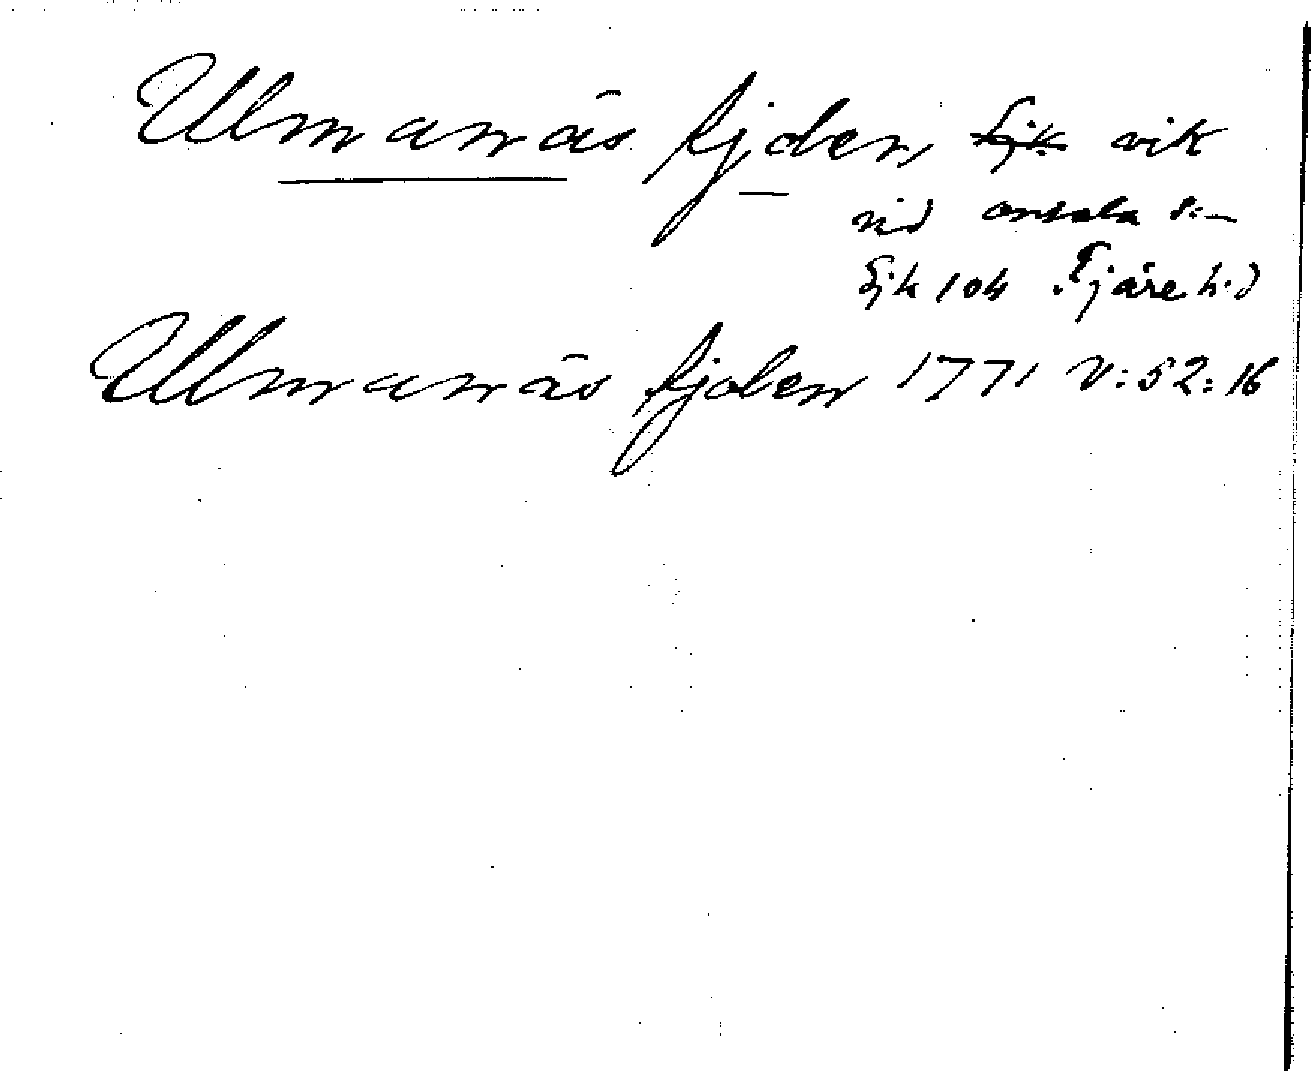 Ulmanäs fjden, Sjk vik
vid onsala s:n
Sjk 104 Fjäre h:d
Ulmanäs fjden 1771 V:52:16